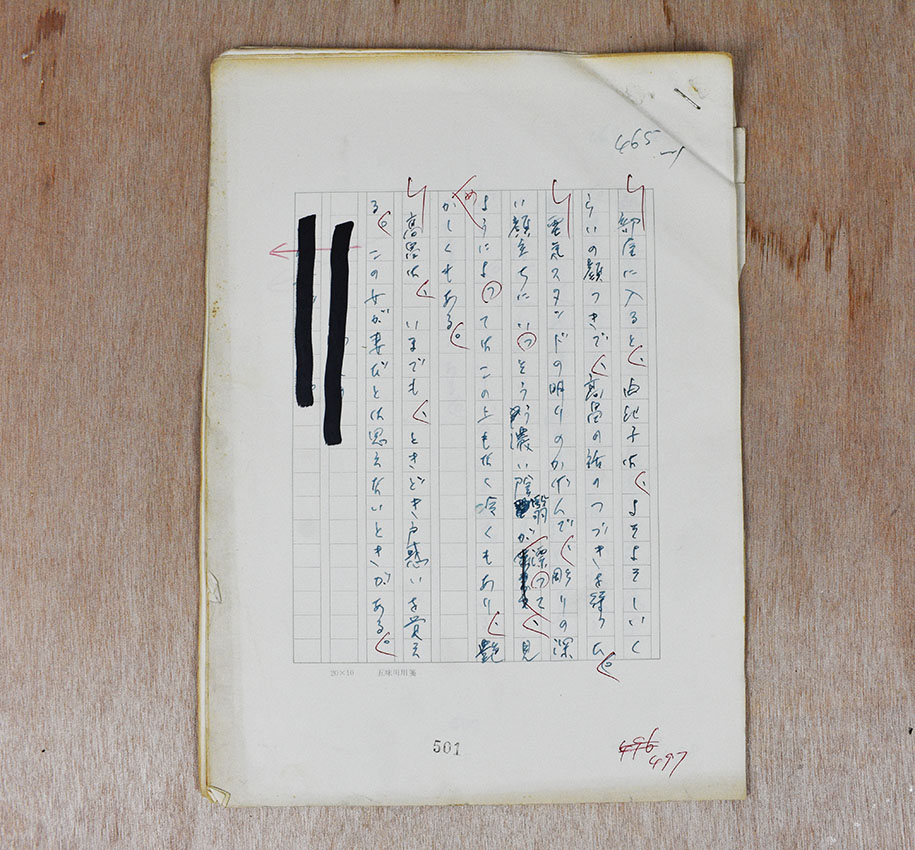 495
部屋に入ると、由紀子は、よそよそしいく
らいの顔つきで、高畠の話のつづきを
電気スタンドの明りのかげんで、彫りの深
い顔立ちにいっそう濃い陰翳が漂って、見
ようによってはこの上もなく冷くもあり、艶
めかしくもある。
高畠は、いまでも、ときどき戸惑いを覚え
る。この女が妻だとは思えないときがある。
20×10 五味川用箋
501
496
497